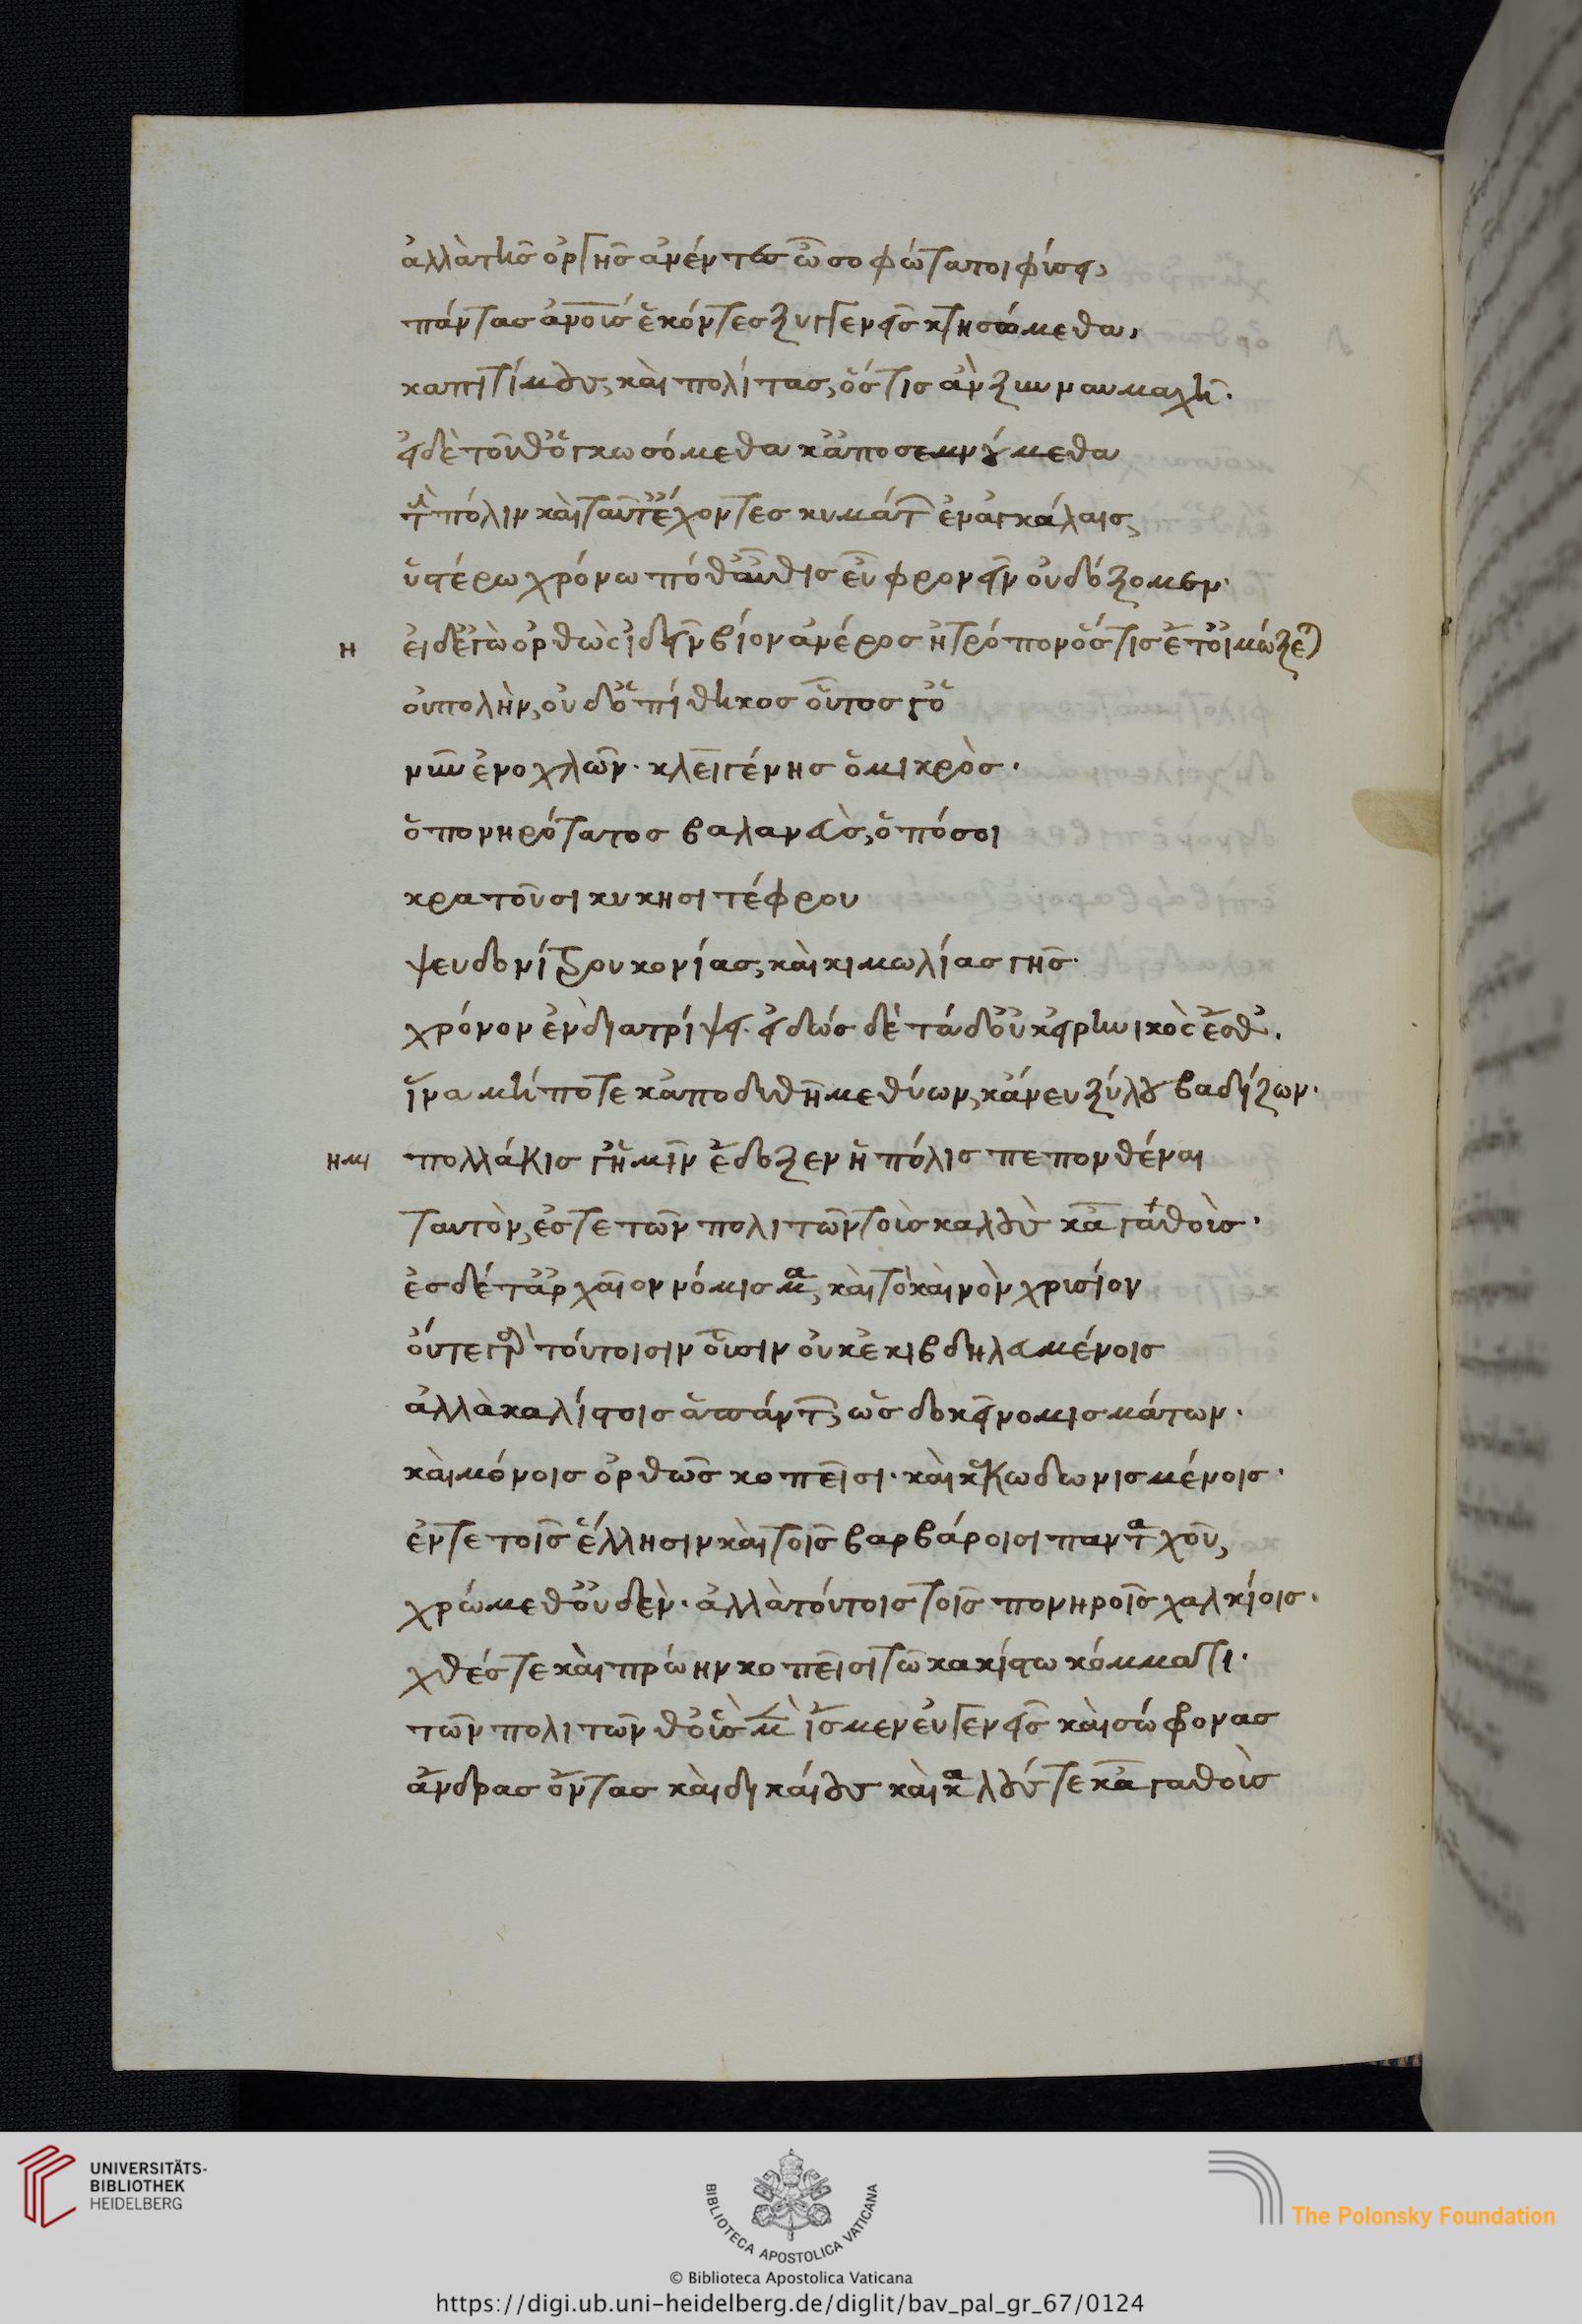 ἀλλὰ τῆς ὀργῆς ἀνέντες ὦ σοφώτατοι φύσει,
πάντας ἀνοῖς ἑκόντες ξυγγενεῖς κτησόμεθα,
καπιτίμους, καὶ πολίτας, ὅστις ἂν ξυνναυμαχῇ.
εἰ δὲ τοῦθ' ὀγκωσόμεθα κἀποσεμνούμεθα
τὴν πόλιν καὶ ταῦτ' ἔχοντες κυμάτων ἐν ἀγκάλαις,
ὑστέρω χρόνω πόθ' αὖθις εὖ φρονεῖν οὐ δόξομεν.
η
εἰ δ' ἐγὼ ὀρθὼς ἰδεῖν βίον ἀνέρος ἢ τρόπον ὅστις ἔτ' οἰμώξεται
οὐ πολὴν, οὐδ' ὁ πίθηκος οὗτος γ' ὁ
νῦν ἐνοχλῶν. κλειγένης ὁ μικρὸς.
ὁ πονηρότατος βαλανεὺς, ὁπόσοι
κρατοῦσι κυκησιτέφρου
ψευδονίτρου κονίας, καὶ κιμωλίας γῆς.
χρόνον ἐνδιατρίψει. εἰδὼς δὲ τάδ' οὐκ εἰρηνικὸς ἔσθ'.
ἵνα μήποτε κἀποδυθῇ μεθύων, κἄνευ ξύλου βαδίζων.
ημι
πολλάκις γ' ἡμῖν ἔδοξεν ἡ πόλις πεπονθέναι
ταυτὸν, ἔς τε τῶν πολιτῶν τοὺς καλοὺς κἀγαθοὺς.
ἐς δέ τἀρχαῖον νόμισμα, καὶ τὸ καινὸν χρυσίον
οὔτε γὰρ τούτοισιν οὖσιν οὐ κεκιβδηλευμένοις
ἀλλὰ καλίστοις ἁπάντων, ὡς δοκεῖ νομισμάτων.
καὶ μόνοις ὀρθῶς κοπεῖσι. καὶ κεκωδωνισμένοις.
ἔν τε τοῖς ἕλλησιν καὶ τοῖς βαρβάροισι πανταχοῦ,
χρώμεθ' οὐδὲν. ἀλλὰ τούτοις τοῖς πονηροῖς χαλκίοις.
χθές τε καὶ πρώην κοπεῖσι τῶ κακίστω κόμματι.
τῶν πολιτῶν θ' οὓς μὲν ἴσμεν εὐγενεῖς καὶ σώφρονας
ἄνδρας ὄντας καὶ δικαίους καὶ καλούς τε κἀγαθοὺς
UNIVERSITÄTS-
BIBLIOTHEK
HEIDELBERG
BIBLIOTECA APOSTOLICA VATICANA
The Polonsky Foundation
© Biblioteca Apostolica Vaticana
https://digi.ub.uni-heidelberg.de/diglit/bav_pal_gr_67/0124